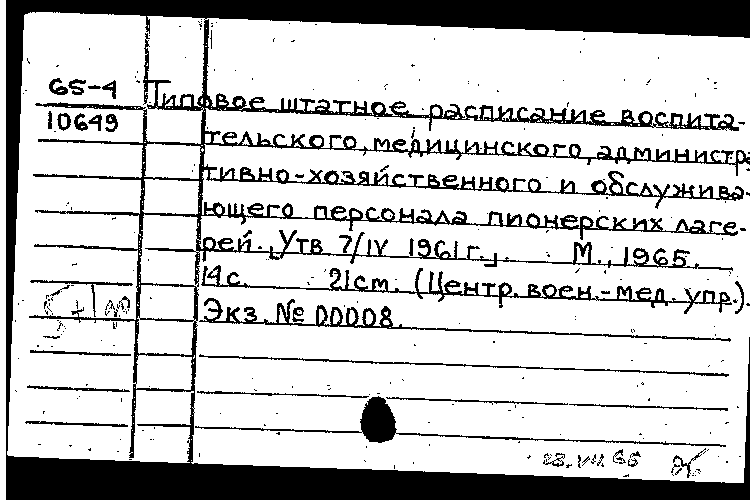 65-4 Типовое штатное расписание воспита-
10649 тельского, медицинского, администра
тивно-хозяйственного и обслужива-
ющего персонала пионерских лаге-
рей. „Утв 7/IV 1961г.„. М., 1965.
14с. 21см. (Центр. воен.-мед. упр.).
Экз. № 00008.
28.VII 65